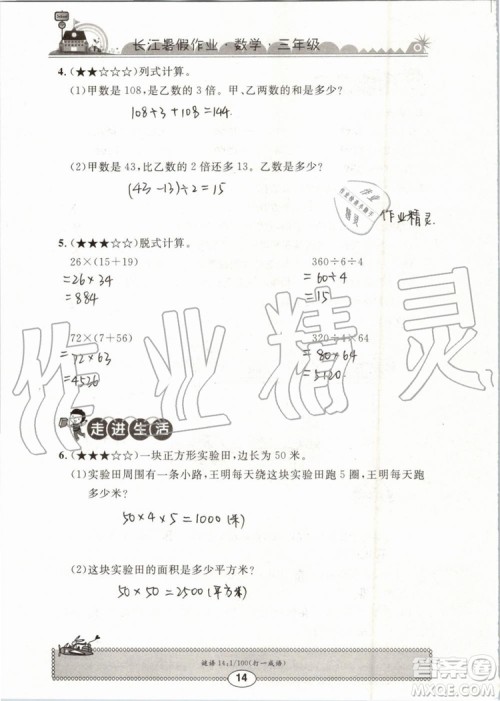 长江暑假作业·数学·三年级
4.(★★☆☆☆)列式计算。
(1)甲数是108,是乙数的3倍。甲、乙两数的和是多少?
108÷3+108=144
(2)甲数是43,比乙数的2倍还多13。乙数是多少?
(43-13)÷2=15
作业精灵
5.(★★★☆☆)脱式计算。
26×(15+19) 360÷6÷4
=26×34 =60÷4
=884 =15
72×(7+56) 320÷4×64
=72×63 =80×64
=4536 =5120
作业精灵
走进生活
6.(★★★☆☆)一块正方形实验田,边长为50米。
(1)实验田周围有一条小路,王明每天绕这块实验田跑5圈,王明每天跑
多少米?
50×4×5=1000(米)
(2)这块实验田的面积是多少平方米?
50×50=2500(平方米)
谜语14:1/100(打一成语)
14
答案圈
MXQE.COM